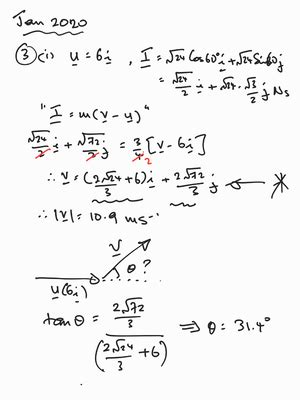 Jan 2020
③ (i) u = 6i , I = √24 Cos60°i + √24 Sin60j
= √24/2 i + √24·√3/2 j Ns
"I = m(v - u)"
√24/2 i + √72/2 j = 3/4 2 [v - 6i]
∴ v = (2√24/3 + 6)i + 2√72/3 j ←
∴ |v| = 10.9 ms⁻¹
v
θ ?
u(6i)
tanθ = (2√72/3) / (2√24/3 + 6) ⇒ θ = 31.4°